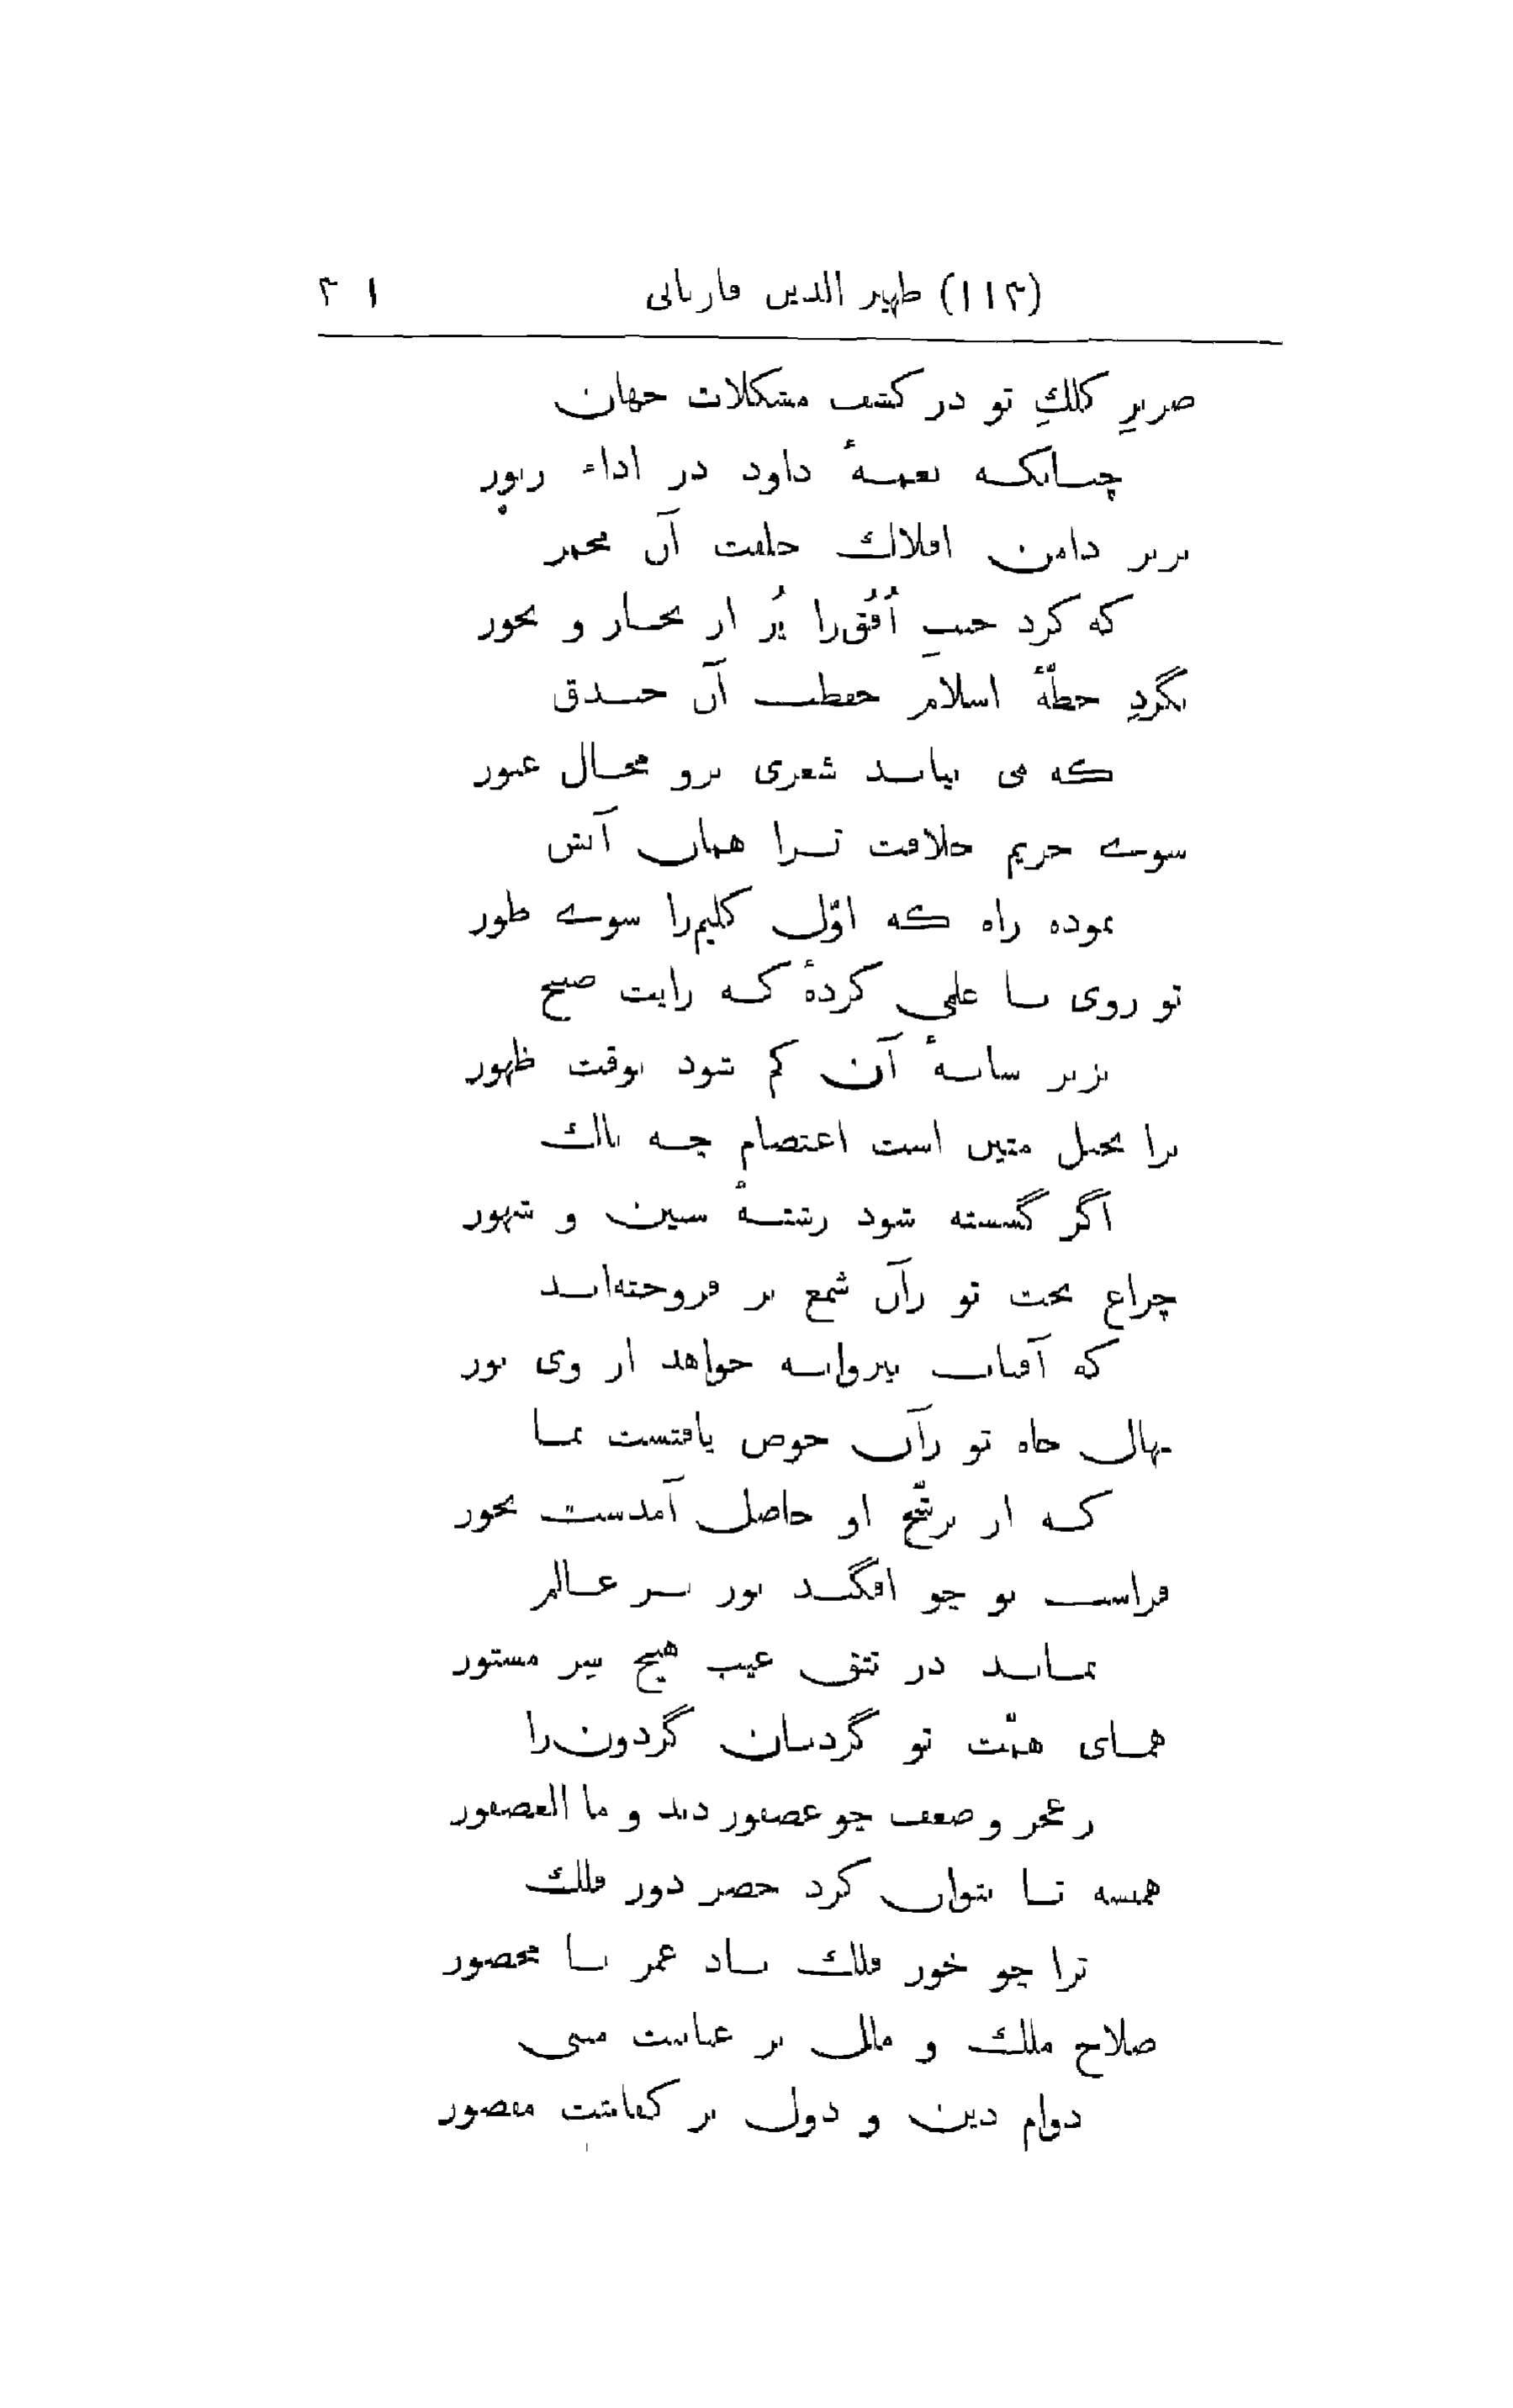 (۱۱۳) ظهیر الدین فاریابی ۳۰۱
صریرِ کلكِ تو در کشف مشکلات جهان
چنانکه نغمهٔ داود در اداء زبور
بزیر دامن افلاك خلقت آن مجمر
که کرد جیبِ اُفُق‌را پُر از بخار و بخور
بگردِ خطّهٔ اسلام حفظت آن خندق
که می نیابد شعری برو مجال عبور
سوے حریم خلافت ترا همان آتش
نموده راه که اوّل کلیم‌را سوے طور
تو روی با علمی کردهٔ که رایت صبح
بزیر سایهٔ آن کم شود بوقت ظهور
ترا بحبل متین است اعتصام چه باك
اگر گسسته شود رشتهٔ سنین و شهور
چراغ بخت تو زآن شمع بر فروخته‌اند
که آفتاب بپروانه خواهد از وی نور
نهال جاه تو زآن حوض یافتست نما
که از ترشّح او حاصل آمدست بحور
فراست تو چو افگند نور بر عالم
نماند در تتق غیب هیچ سِر مستور
همای همّت تو گردنان گردون‌را
ز عجز و ضعف چو عصفور دند و ما العصفور
همیشه تا نتوان کرد حصر دور فلك
ترا چو خور فلك باد عمر نا محصور
صلاح ملك و مال بر عنایت مبنی
دوام دین و دول بر کفایتت مقصور